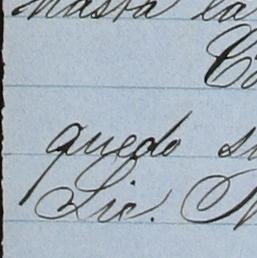 hasta la
quedo su
Lic.